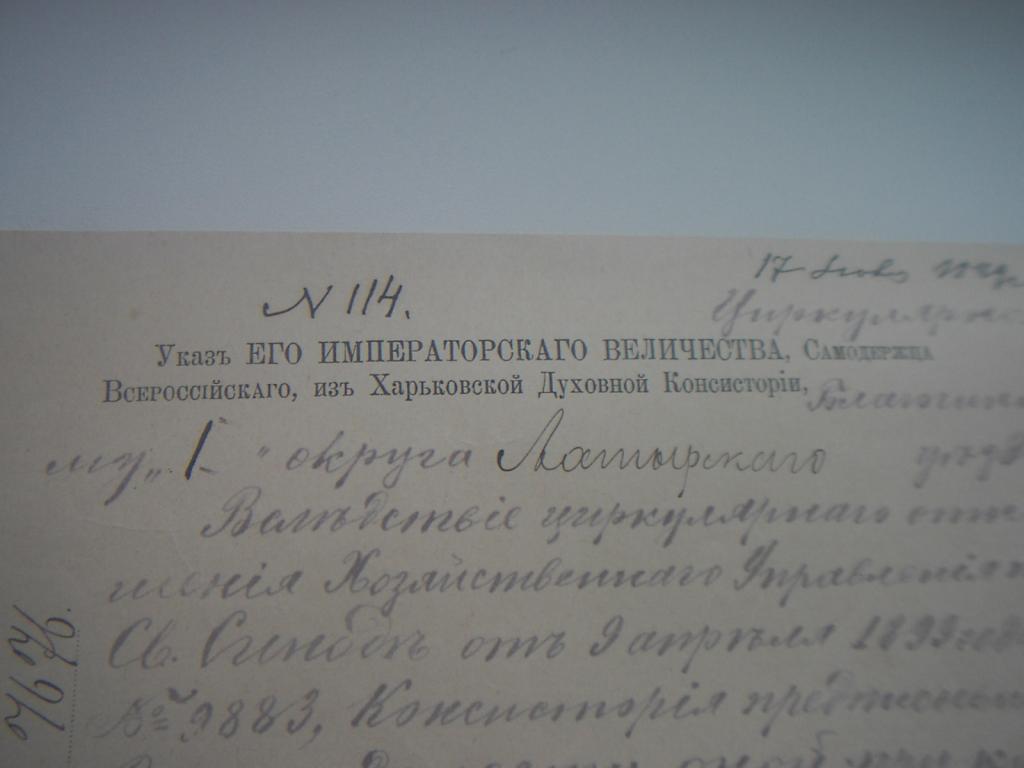 17
Циркулярно
N 114.
Указъ ЕГО ИМПЕРАТОРСКАГО ВЕЛИЧЕСТВА, Самодержца
Всероссійскаго, изъ Харьковской Духовной Консисторіи, Благочин
му „1" округа уѣзд
Вслѣдствіе циркулярнаго отно
шенія Хозяйственнаго Управленія п
Св. Сѵнодѣ отъ 9 апрѣля 1899 года
№ 9883, Консисторія предписы